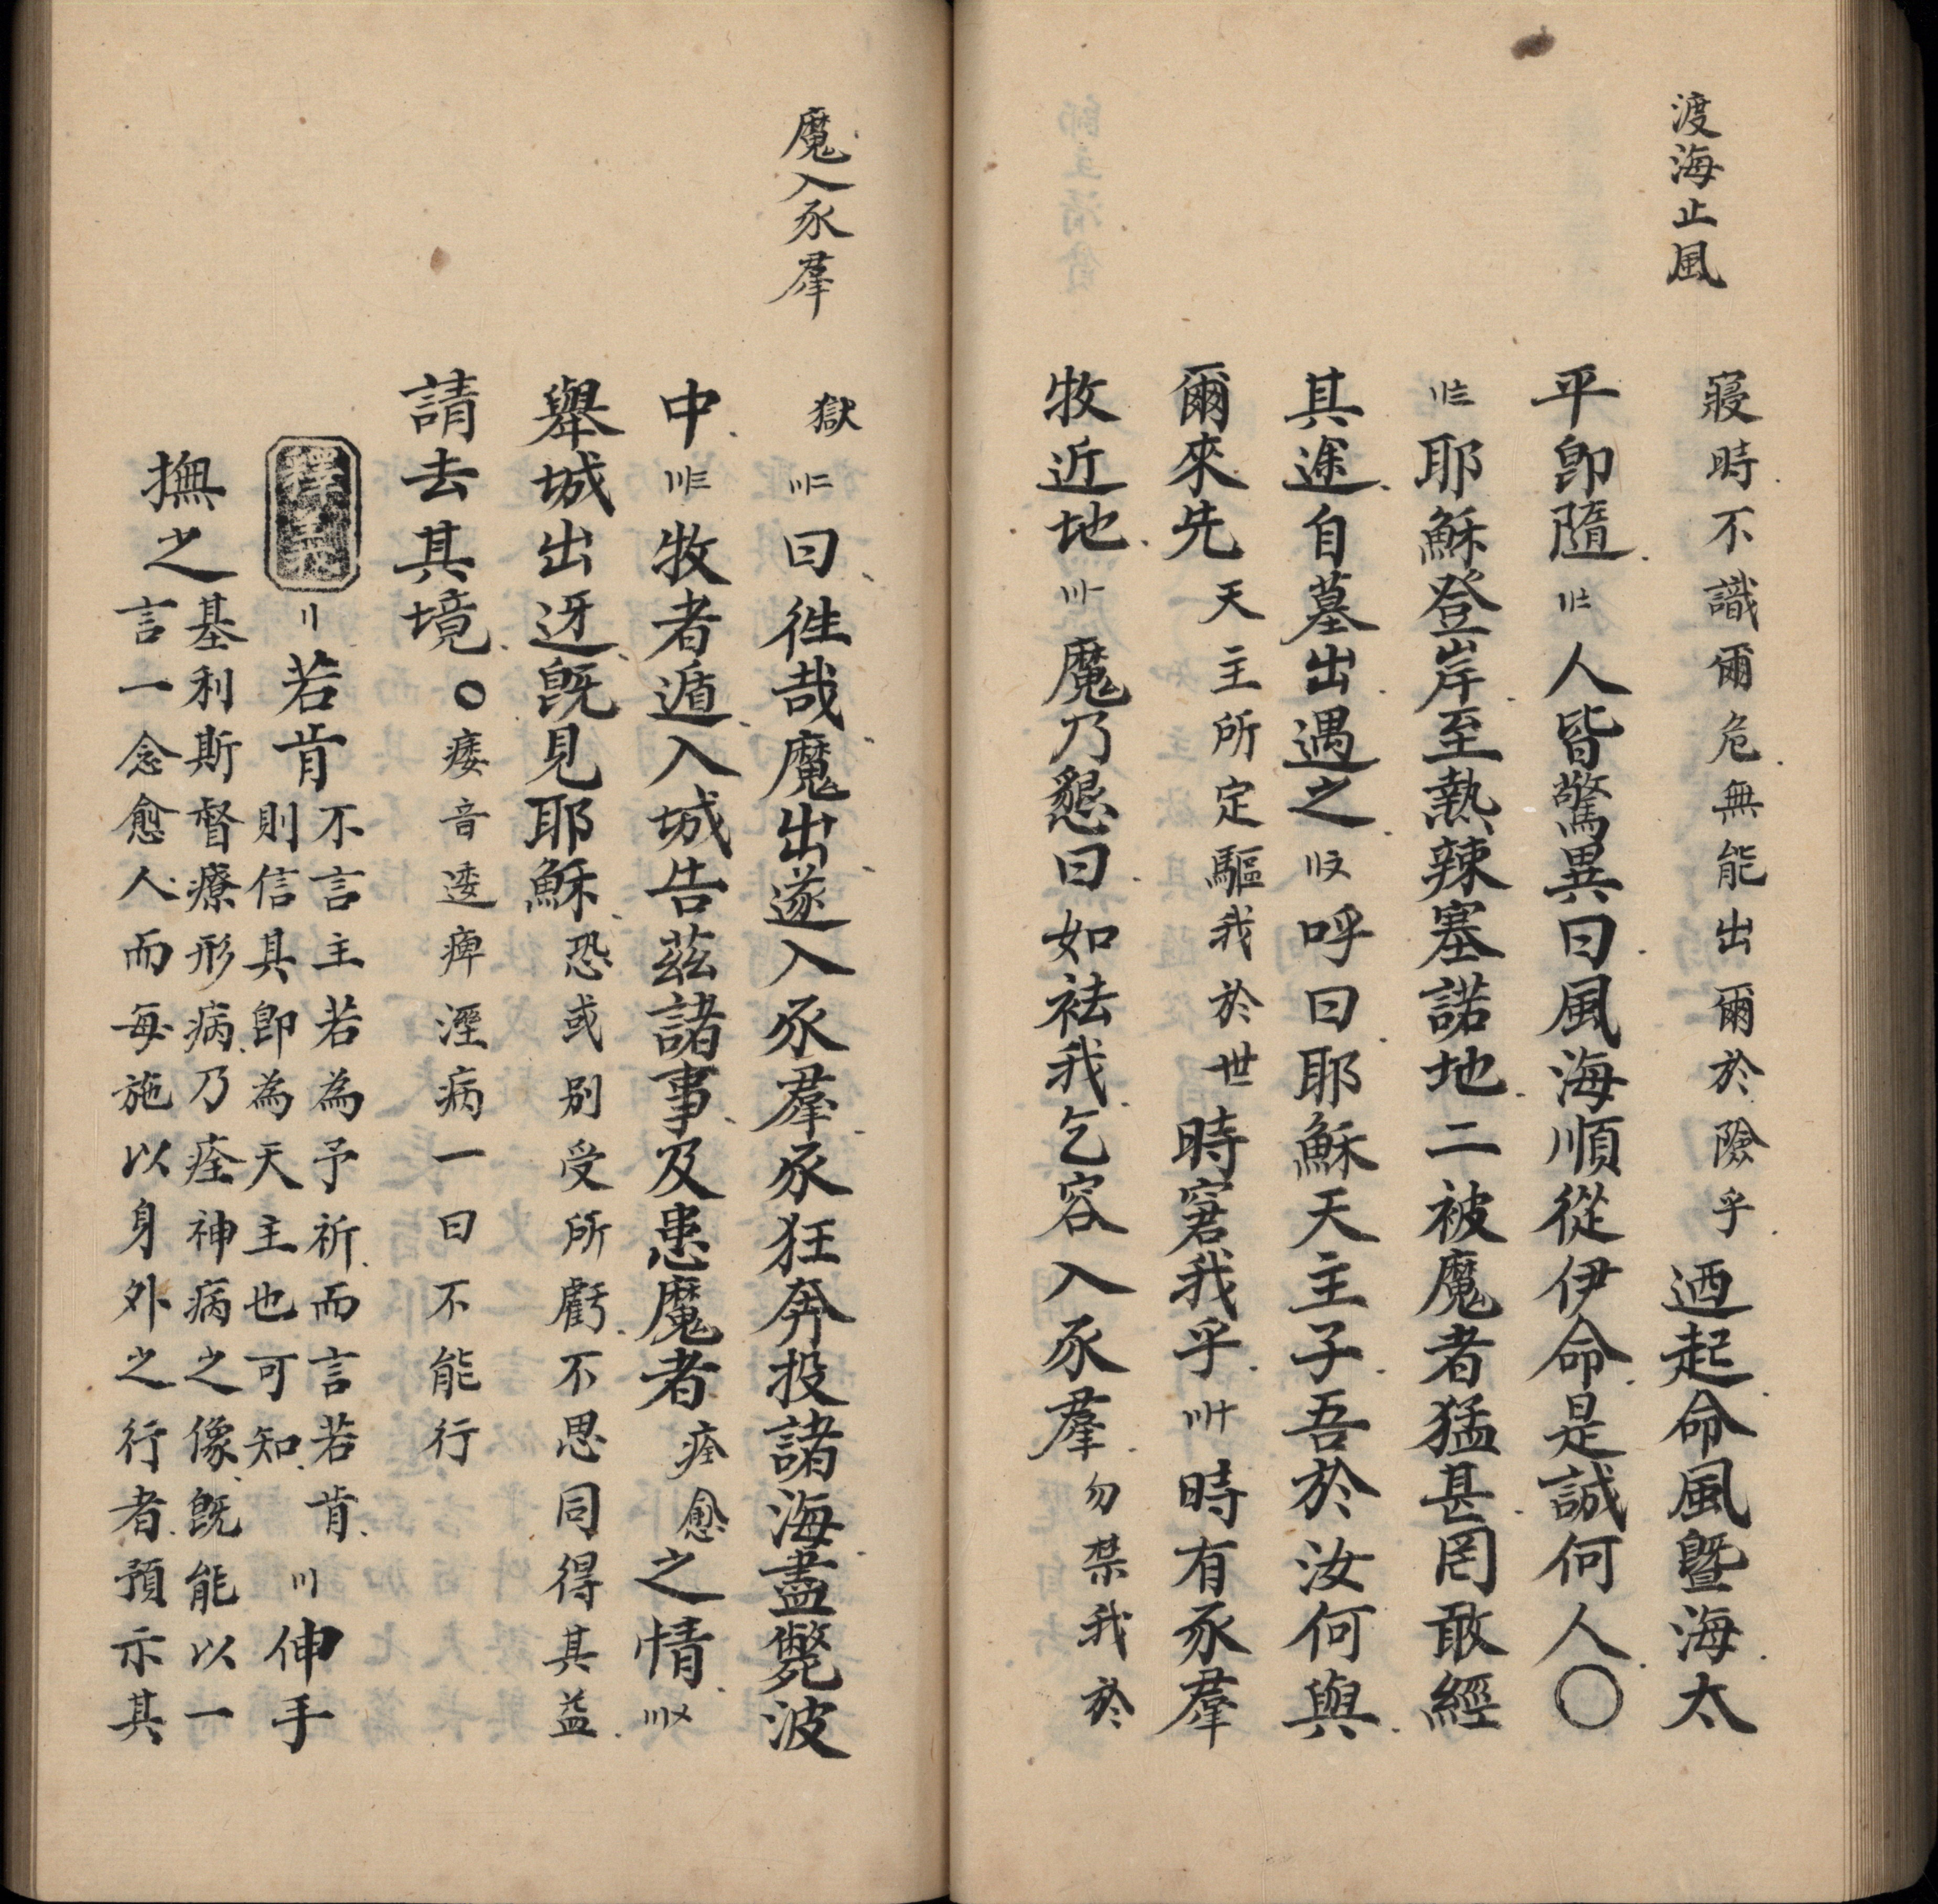 渡海止風
寢時不識爾危無能出爾於險乎迺起命風曁海太
平卽隨〢〧人皆驚異曰風海順從伊命是誠何人〇
〢〨耶穌登岸至熱辣塞諾地二被魔者猛甚罔敢經
其途自墓出遇之〢〩呼曰耶穌天主子吾於汝何與
爾來先天主所定驅我於世時窘我乎〣〸時有豕羣
牧近地〣〡魔乃懇曰如祛我乞容入豕羣勿禁我於
魔入豕羣
獄〣〢曰徃哉魔出遂入豕羣豕狂奔投諸海盡斃波
中〣〣牧者遁入城告茲諸事及患魔者痊愈之情〣〤
舉城出迓旣見耶穌恐或别受所虧不思同得其益
請去其境〇痿音逶痺溼病一曰不能行
〢若肯不言主若為予祈而言若肯
則信具卽為天主也可知〣伸手
撫之基利斯督療形病乃痊神病之像旣能以一
言一念愈人而每施以身外之行者預示其